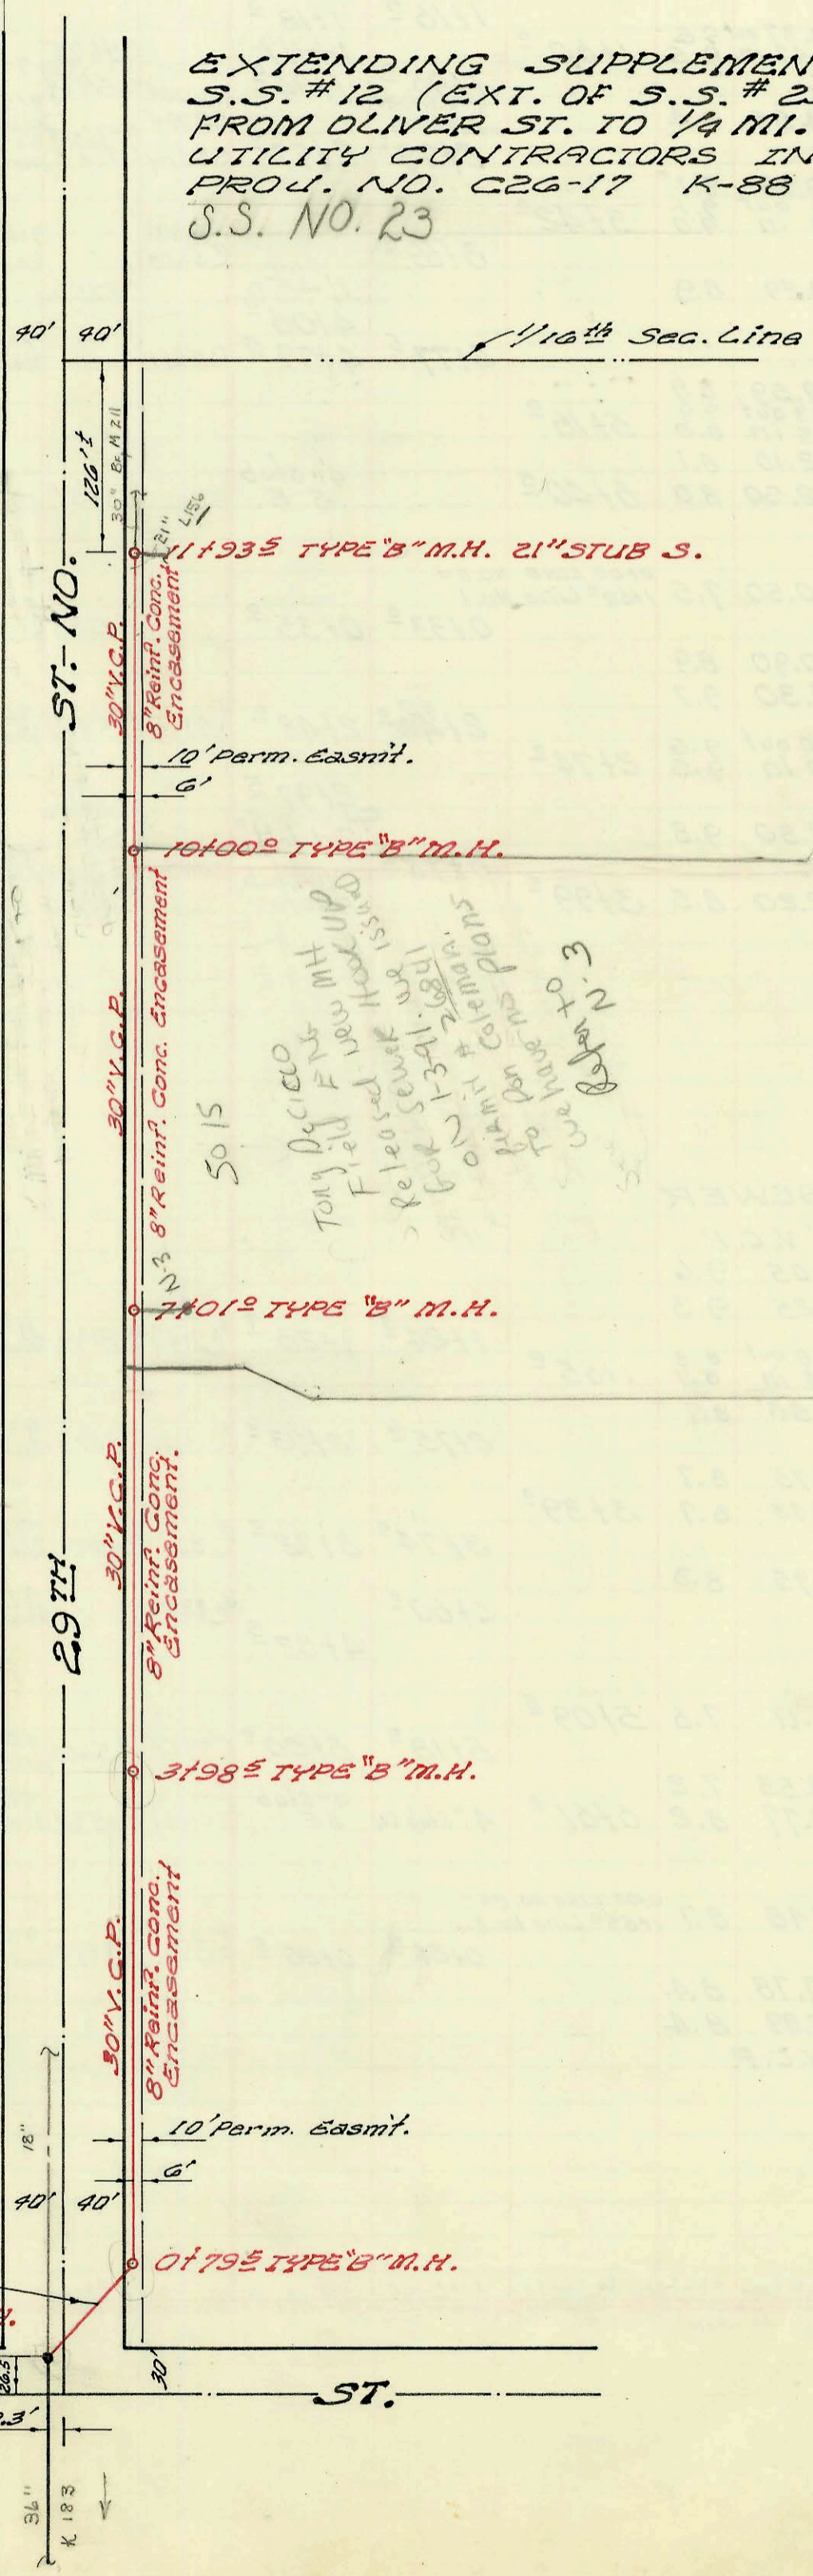 EXTENDING SUPPLEMEN
S.S. #12 (EXT. OF S.S. #2
FROM OLIVER ST. TO 1/4 MI.
UTILITY CONTRACTORS IN
PROJ. NO. C26-17 K-88
S.S. NO. 23
40' 40'
1/16th Sec. Line
126'±
30" Bf. M 211
21"
L156
11+93⁵ TYPE "B" M.H. 21" STUB S.
ST. NO.
30" V.C.P.
8" Reinf. Conc.
Encasement
10' Perm. Easm't.
6'
10+00⁰ TYPE "B" M.H.
30" V.C.P.
8" Reinf. Conc. Encasement
50 15
Tony
Field Eng
Released New MH
For Sewer Hook UP
ON 1-3-91. we issued
Permit # 26841
To Don Coleman.
we have no plans
Refer to
N.3
N-3
7+01⁰ TYPE "B" M.H.
30" V.C.P.
8" Reinf. Conc.
Encasement.
29TH
3+98⁵ TYPE "B" M.H.
30" V.C.P.
8" Reinf. Conc.
Encasement
18"
10' Perm. Easm't.
6'
40' 40'
0+79⁵ TYPE "B" M.H.
26.5
30'
ST.
.3'
36"
K 183